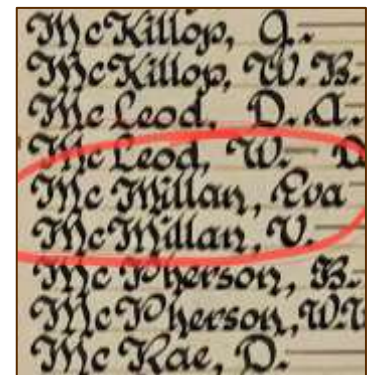 McKillop, J.
McKillop, W.B.
McLeod, D.A.
McLeod, W.
McMillan, Eva
McMillan, V.
McPherson, B.
McPherson, W.
McRae, D.